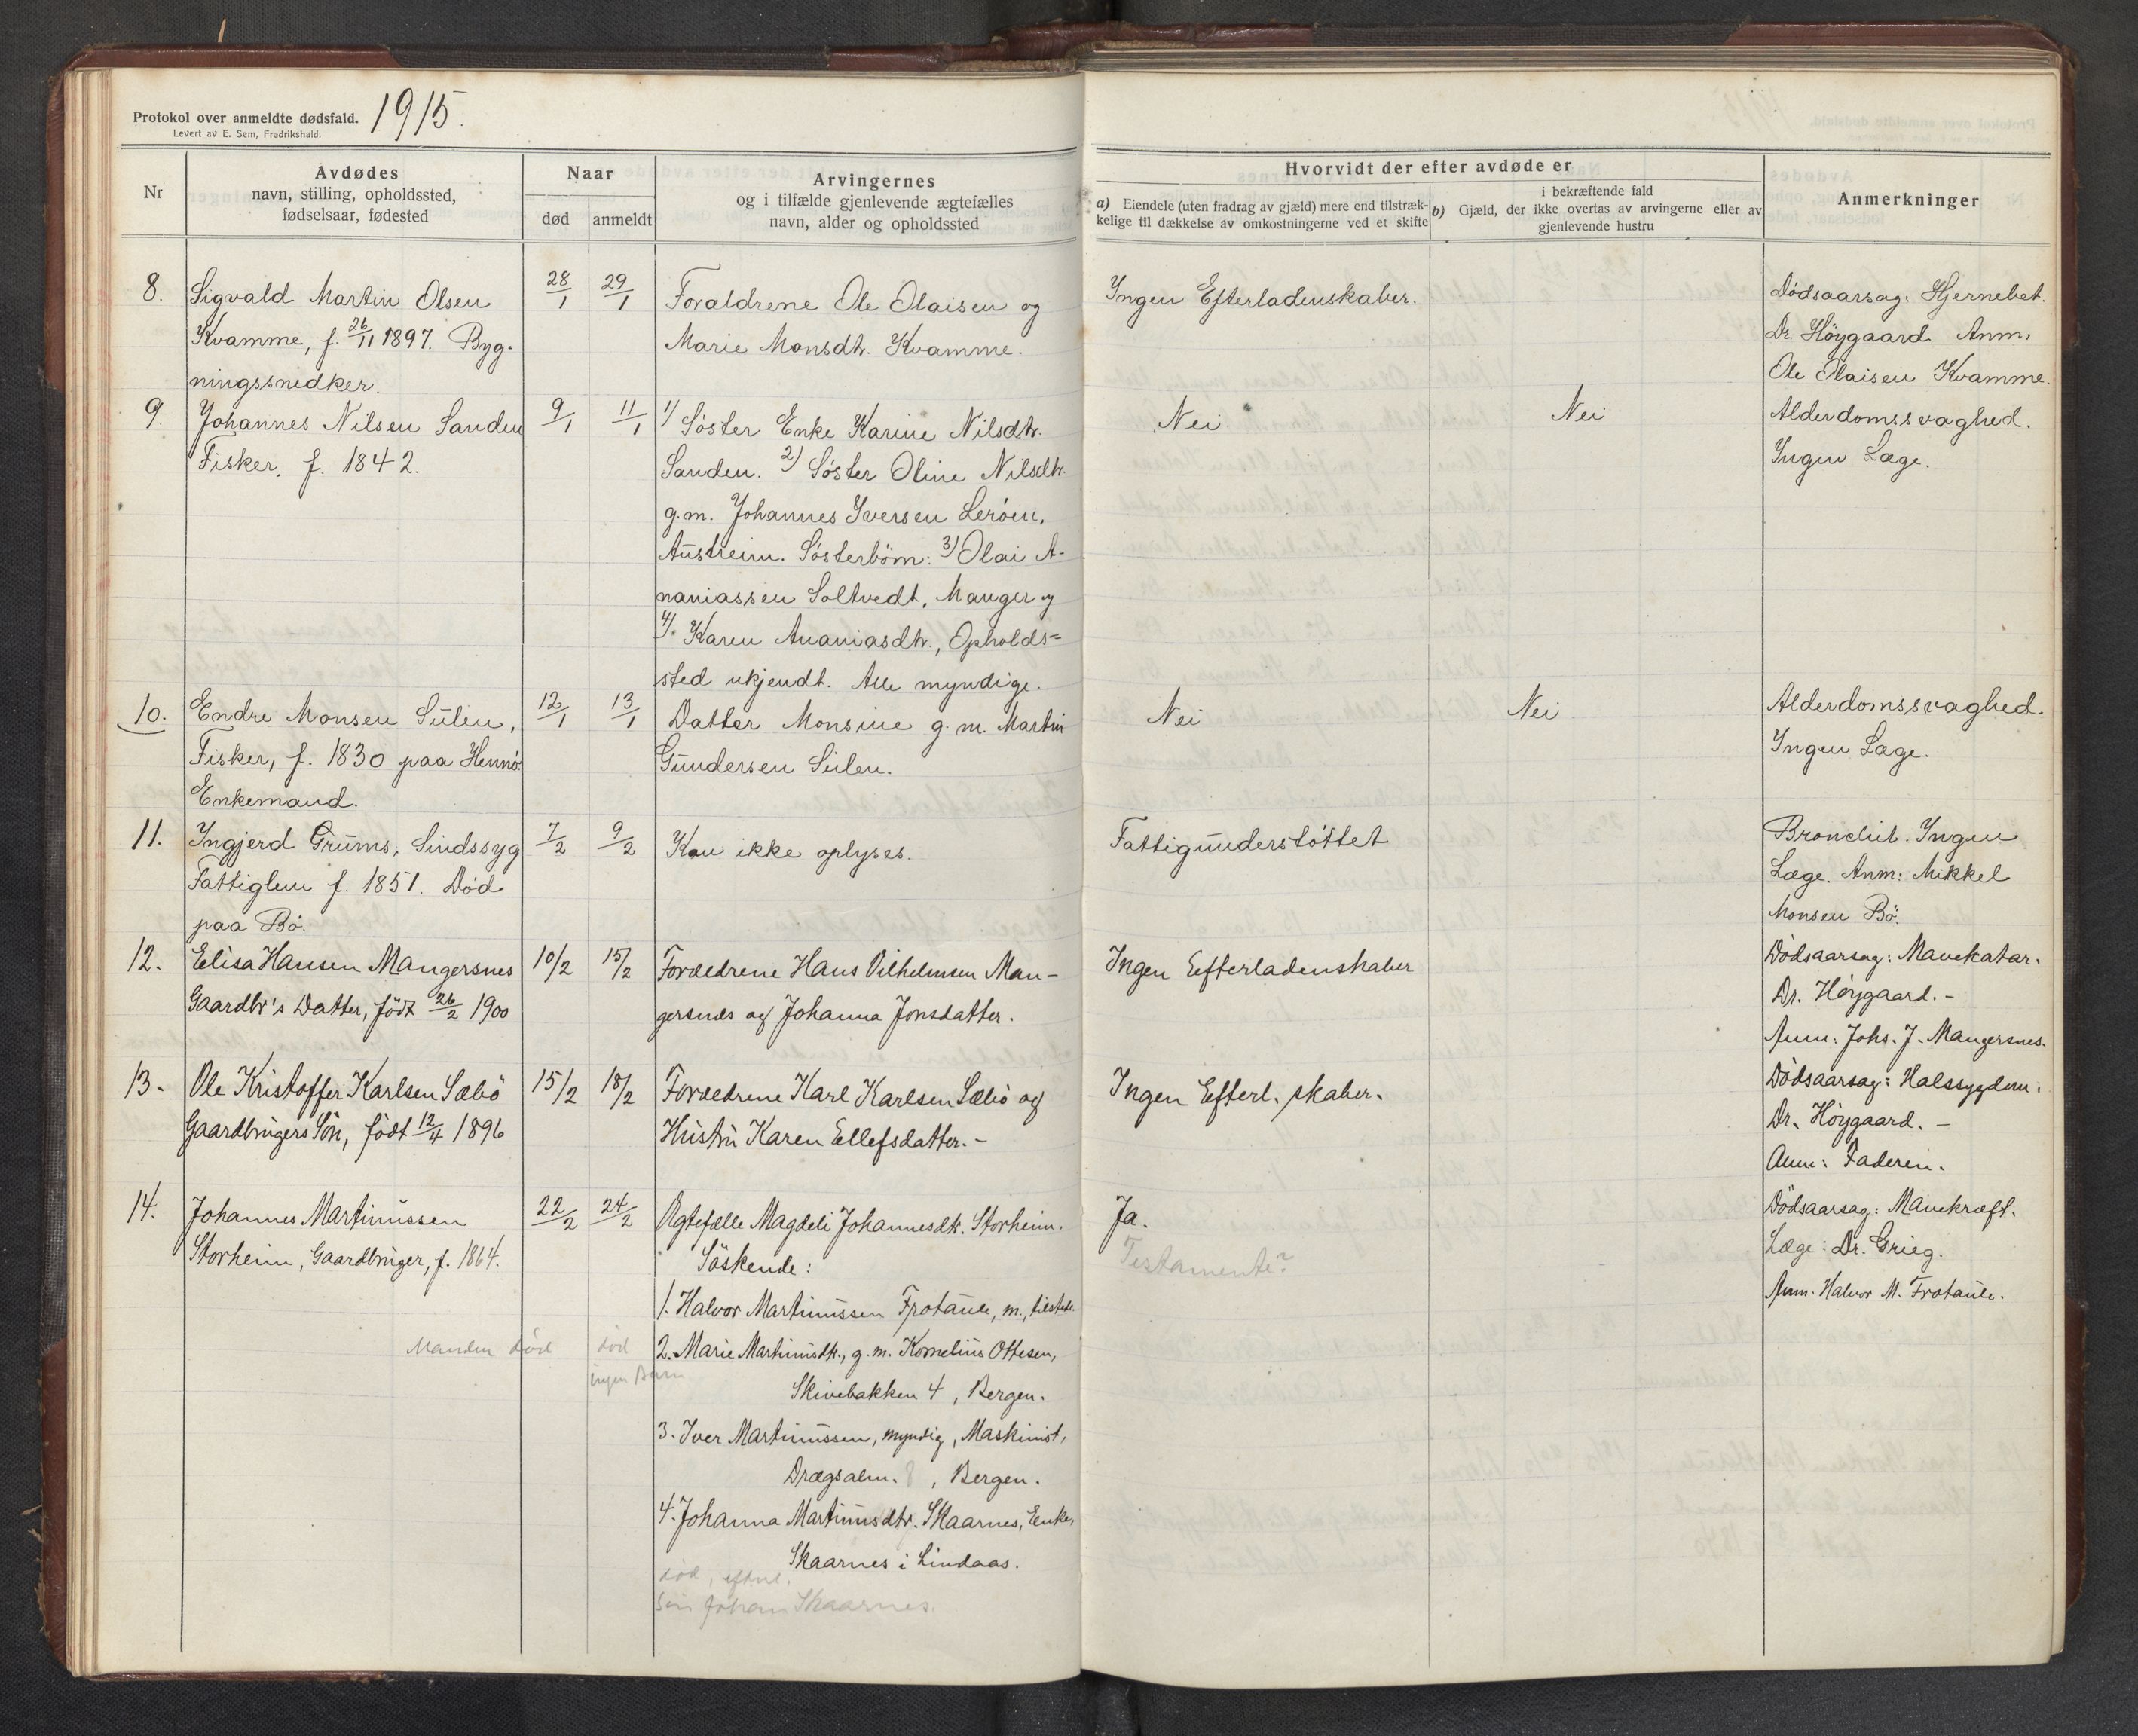 Protokol over anmeldte dødsfald. 1915.
Levert av E. Sem, Fredrikshald.
Nr
Avdødes
navn, stilling, opholdssted,
fødselsaar, fødested
Naar
død
anmeldt
Arvingernes
og i tilfælde gjenlevende ægtefælles
navn, alder og opholdssted
Hvorvidt der efter avdøde er
a) Eiendele (uten fradrag av gjæld) mere end tilstræk-
kelige til dækkelse av omkostningerne ved et skifte
i bekræftende fald
b) Gjæld, der ikke overtas av arvingerne eller av
gjenlevende hustru
Anmerkninger
8.
Sigvald Martin Olsen
Kvamme, f. 26/11 1897. Byg-
ningssnedker.
28/1
29/1
Forældrene Ole Olaisen og
Marie Monsdtr. Kvamme.
Ingen Efterladenskaber.
Dødsaarsag: Hjernebet.
Dr. Høygaard Anm:
Ole Olaisen Kvamme.
9.
Johannes Nilsen Sanden
Fisker, f. 1842.
9/1
11/1
1) Søster Enke Karine Nilsdtr.
Sanden. 2) Søster Oline Nilsdtr.
g.m. Johannes Iversen Lerøen,
Austreim. Søsterbørn: 3) Olai A-
naniassen Soltvedt, Manger og
4) Karen Ananiasdtr., Opholds-
sted ukjendt. Alle myndige.
Nei
Nei
Alderdomssvaghed.
Ingen Læge.
10.
Endre Monsen Sulen,
Fisker, f. 1830 paa Hennø.
Enkemand.
12/1
13/1
Datter Monsine g.m. Martin
Gundersen Sulen.
Nei
Nei
Alderdomssvaghed.
Ingen Læge.
11.
Ingjerd Grums, Sindssyg
Fattiglem f. 1851. Død
paa Bø.
7/2
9/2
Kan ikke oplyses.
Fattigunderstøttet
Bronchit. Ingen
Læge. Anm: Mikkel
Monsen Bø.
12.
Elisa Hansen Mangersnes
Gaardbr's Datter, født 26/2 1900
10/2
15/2
Forældrene Hans Vilhelmsen Man-
gersnes og Johanna Jonsdatter.
Ingen Efterladenskaber
Dødsaarsag: Mavekatar.
Dr. Høygaard. -
Anm: Johs. J. Mangersnes.
13.
Ole Kristoffer Karlsen Sæbø
Gaardbrugers Søn, født 12/4 1896
15/2
18/2
Forældrene Karl Karlsen Sæbø og
Hustru Karen Ellefsdatter. -
Ingen Efterl. skaber.
Dødsaarsag: Halssygdom.
Dr. Høygaard. -
Anm: Faderen.
14.
Johannes Martinussen
Storheim, Gaardbruger, f. 1864.
22/2
24/2
Ægtefælle Magdeli Johannesdtr. Storheim.
Søskende:
1. Halvor Martinussen Frotaule, m., tilstede
2. Marie Martinusdtr., g.m. Kornelius Ottesen,
Skivebakken 4, Bergen.
3. Iver Martinussen, myndig, Maskinist,
Drægsalm. 8, Bergen.
4. Johanna Martinusdtr. Skaarnes, Enke,
Skaarnes i Lindaas.
Manden død
død
ingen Barn
død, efterl.
Søn Johan Skaarnes.
Ja.
Testamente?
Dødsaarsag: Mavekræft.
Læge: Dr. Grieg.
Anm. Halvor M. Frotaule.